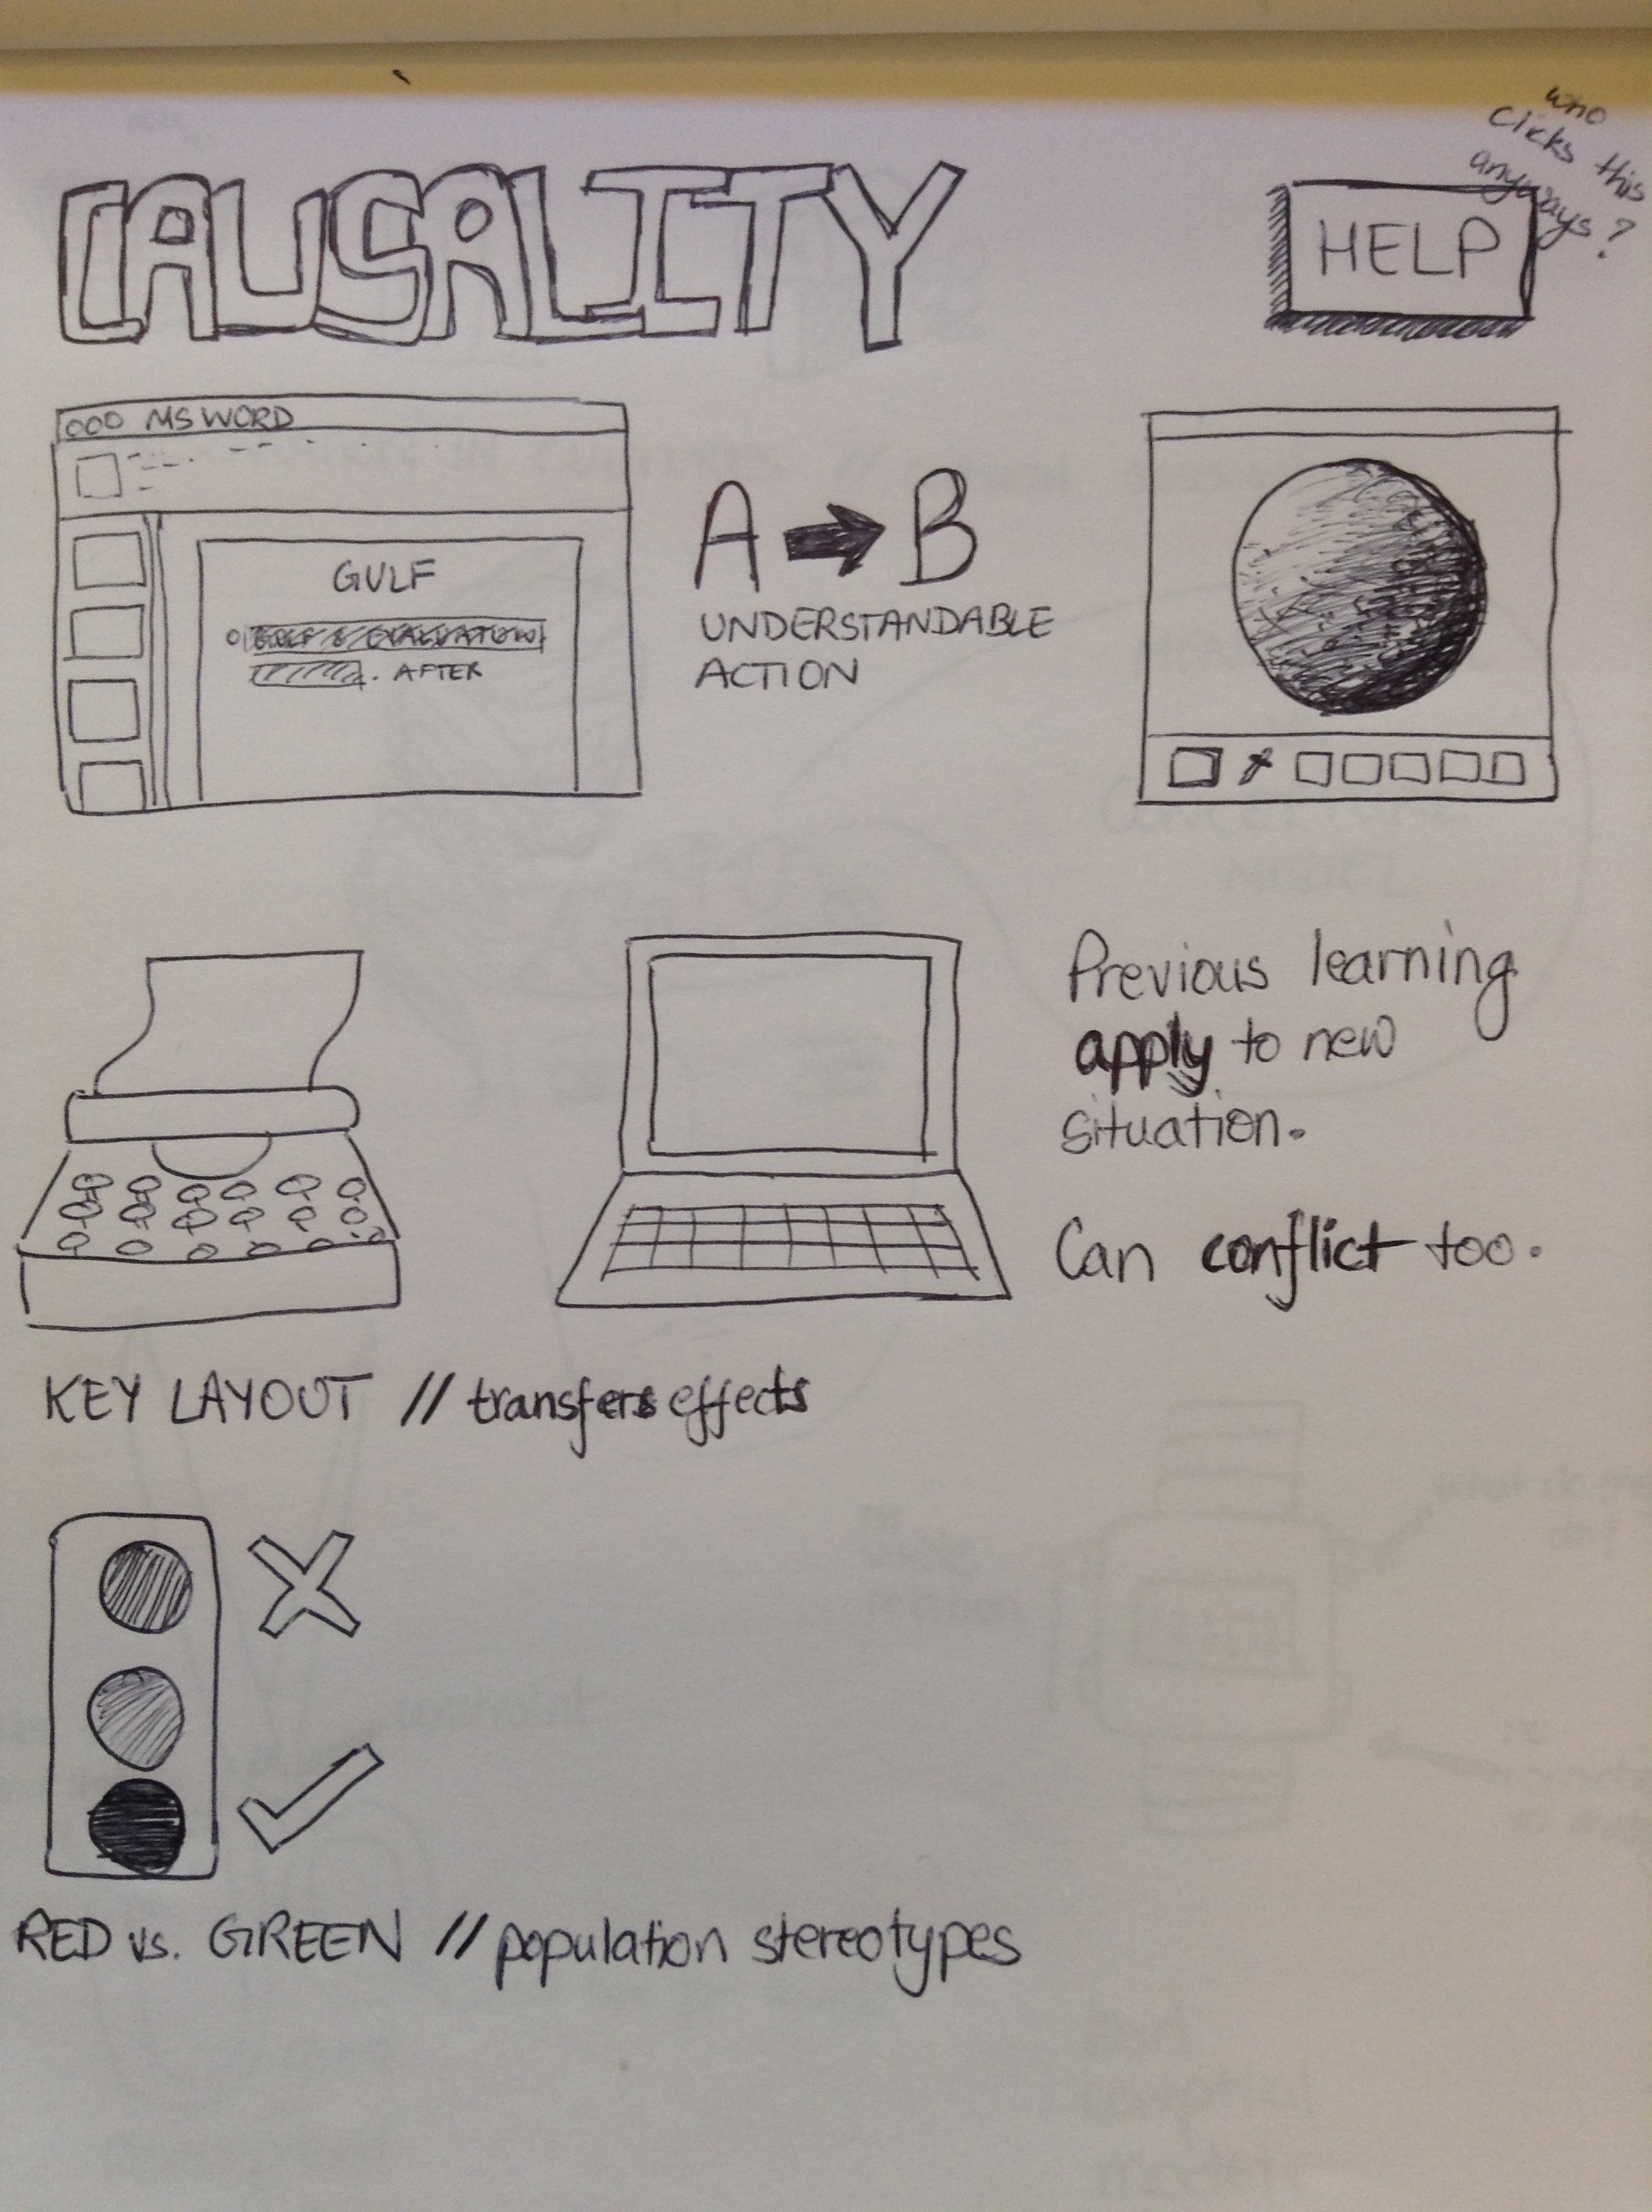 CAUSALITY
who
clicks this
anyways?
HELP
MS WORD
GULF
GULF & EVALUATION
. AFTER
A B
UNDERSTANDABLE
ACTION
Previous learning
apply to new
situation.
Can conflict too.
KEY LAYOUT // transfers effects
RED vs. GREEN // population stereotypes